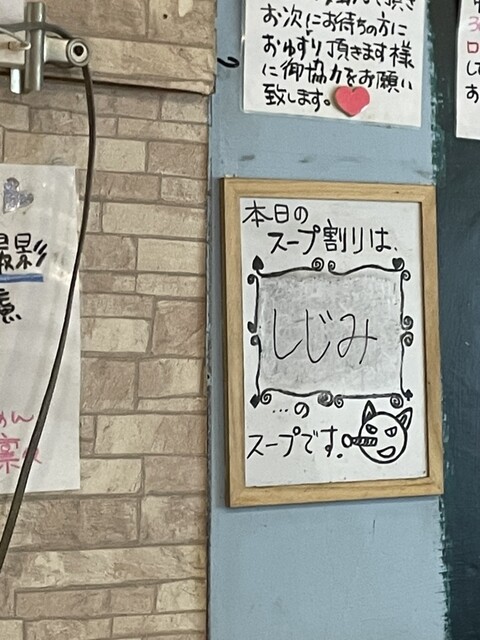 お次にお待ちの方に
おゆずり頂きます様
に御協力をお願い
致します。
本日の
スープ割りは、
しじみ
…の
スープです。